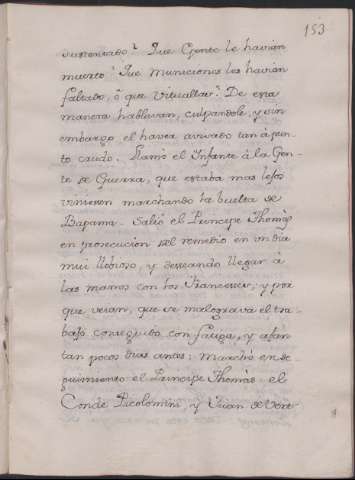 153
sustentado? Que Gente le havian
muerto? Que Municiones les havian
faltado, ô que Vituallas? De esta
manera hablavan, culpandole, y sin
embargo el havia arivado tan à pun-
to crudo. Llamò el Infante à la Gen-
te de Guerra, que estaba mas lejos
viniesen marchando la buelta de
Bapama. Saliò el Principe Thomàs
en prosecucion del remedio en un dia
mui llobioso, y desseando llegar à
las manos con los Franceses; y por
que veian, que se malograva el tra-
bajo conseguido con fatiga, y afan
tan pocos dias antes: Marchò en se-
guimiento el Principe Thomàs: el
Conde Picolomini, y Vivan de Vert-